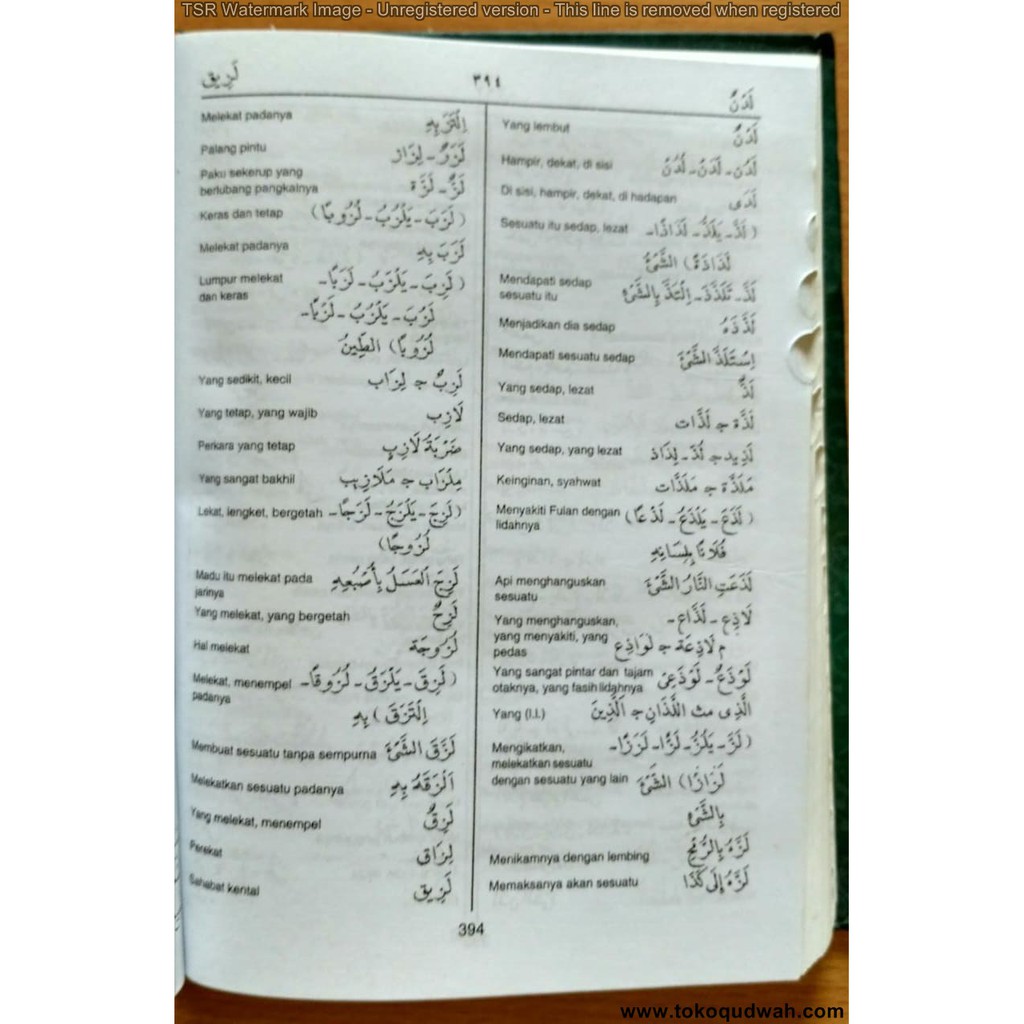 TSR Watermark Image - Unregistered version - This line is removed when registered
لَزِيق ٣٩٤ لَدَنٌ
Yang lembut لَدَنٌ
Hampir, dekat, di sisi لَدُن - لَدَنْ - لُدُنْ
Di sisi, hampir, dekat, di hadapan لَدَى
Sesuatu itu sedap, lezat (لَذَّ - يَلَذُّ - لَذَاذًا -
لَذَاذَةً) الشَّيْءُ
Mendapati sedap لَذَّ - تَلَذَّذَ - اِلْتَذَّ بِالشَّيْءِ
sesuatu itu
Menjadikan dia sedap لَذَّذَهُ
Mendapati sesuatu sedap اِسْتَلَذَّ الشَّيْءَ
Yang sedap, lezat لَذٌّ
Sedap, lezat لَذَّة ج لَذَّات
Yang sedap, yang lezat لَذِيذ ج لُذّ - لِذَاذ
Keinginan, syahwat مَلَذَّة ج مَلَذَّات
Menyakiti Fulan dengan (لَذَعَ - يَلْذَعُ - لَذْعًا)
lidahnya
فُلَانًا بِلِسَانِهِ
Api menghanguskan لَذَعَتِ النَّارُ الشَّيْءَ
sesuatu
Yang menghanguskan, لَاذِع - لَذَّاع -
yang menyakiti, yang م لَاذِعَة ج لَوَاذِع
pedas
Yang sangat pintar dan tajam لَوْذَعٌ - لَوْذَعِيّ
otaknya, yang fasih lidahnya
Yang (l.l.) الَّذِى مث اللَّذَانِ ج الَّذِينَ
Mengikatkan, (لَزَّ - يَلُزُّ - لَزًّا - لَزَزًا -
melekatkan sesuatu
dengan sesuatu yang lain لَزَازًا) الشَّيْءَ
بِالشَّيْءِ
Menikamnya dengan lembing لَزَّهُ بِالرُّمْحِ
Memaksanya akan sesuatu لَزَّهُ إِلَى كَذَا
Melekat padanya اِلْتَزَّ بِهِ
Palang pintu لَزَزٌ - لِزَاز
Paku sekerup yang
berlubang pangkalnya لَزٌّ - لَزَّة
Keras dan tetap (لَزَبَ - يَلْزُبُ - لُزُوبًا)
Melekat padanya لَزَبَ بِهِ
Lumpur melekat (لَزِبَ - يَلْزَبُ - لَزَبًا -
dan keras
لَزُبَ - يَلْزُبُ - لَزْبًا -
لُزُوبًا) الطِّينُ
Yang sedikit, kecil لَزِبٌ ج لِزَاب
Yang tetap, yang wajib لَازِب
Perkara yang tetap ضَرْبَةُ لَازِبٍ
Yang sangat bakhil مِلْزَاب ج مَلَازِيب
Lekat, lengket, bergetah (لَزِجَ - يَلْزَجُ - لَزَجًا -
لُزُوجًا)
Madu itu melekat pada لَزِجَ الْعَسَلُ بِأَصْبُعِهِ
jarinya
Yang melekat, yang bergetah لَزِجٌ
Hal melekat لُزُوجَة
Melekat, menempel (لَزِقَ - يَلْزَقُ - لُزُوقًا -
padanya
اِلْتَزَقَ) بِهِ
Membuat sesuatu tanpa sempurna لَزَّقَ الشَّيْءَ
Melekatkan sesuatu padanya أَلْزَقَهُ بِهِ
Yang melekat, menempel لَزِقٌ
Perekat لِزَاق
Sahabat kental لَزِيق
394
www.tokoqudwah.com